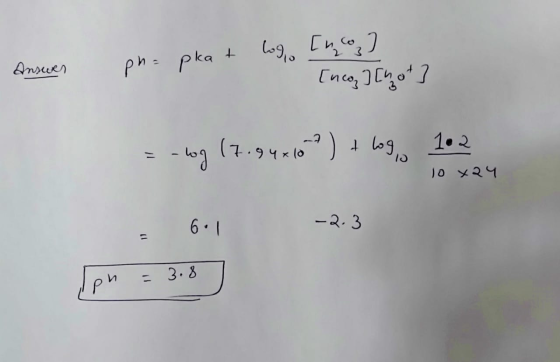 Answer pH = pka + log₁₀ [H₂CO₃] / [HCO₃][H₃O⁺]
= -log (7.94×10⁻⁷) + log₁₀ 1.2 / 10 × 24
= 6.1 -2.3
pH = 3.8